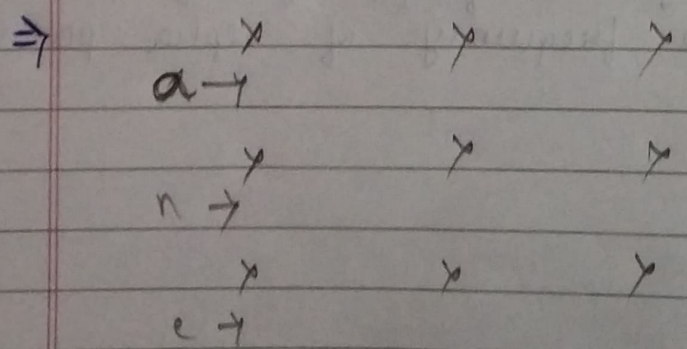 ⇒ y y y
a →
y y y
n →
y y y
e →